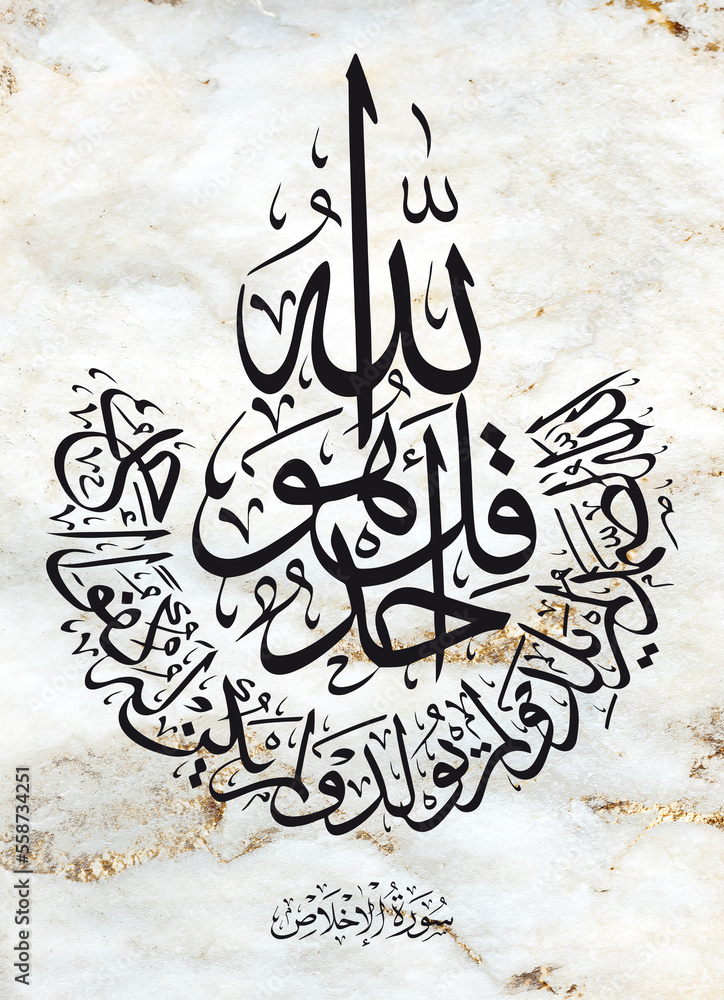 قُلْ هُوَ اللَّهُ أَحَدٌ
اللَّهُ الصَّمَدُ لَمْ يَلِدْ وَلَمْ يُولَدْ وَلَمْ يَكُنْ لَهُ كُفُوًا أَحَدٌ
سُورَةُ الْإِخْلَاصِ
Adobe Stock | #558734251